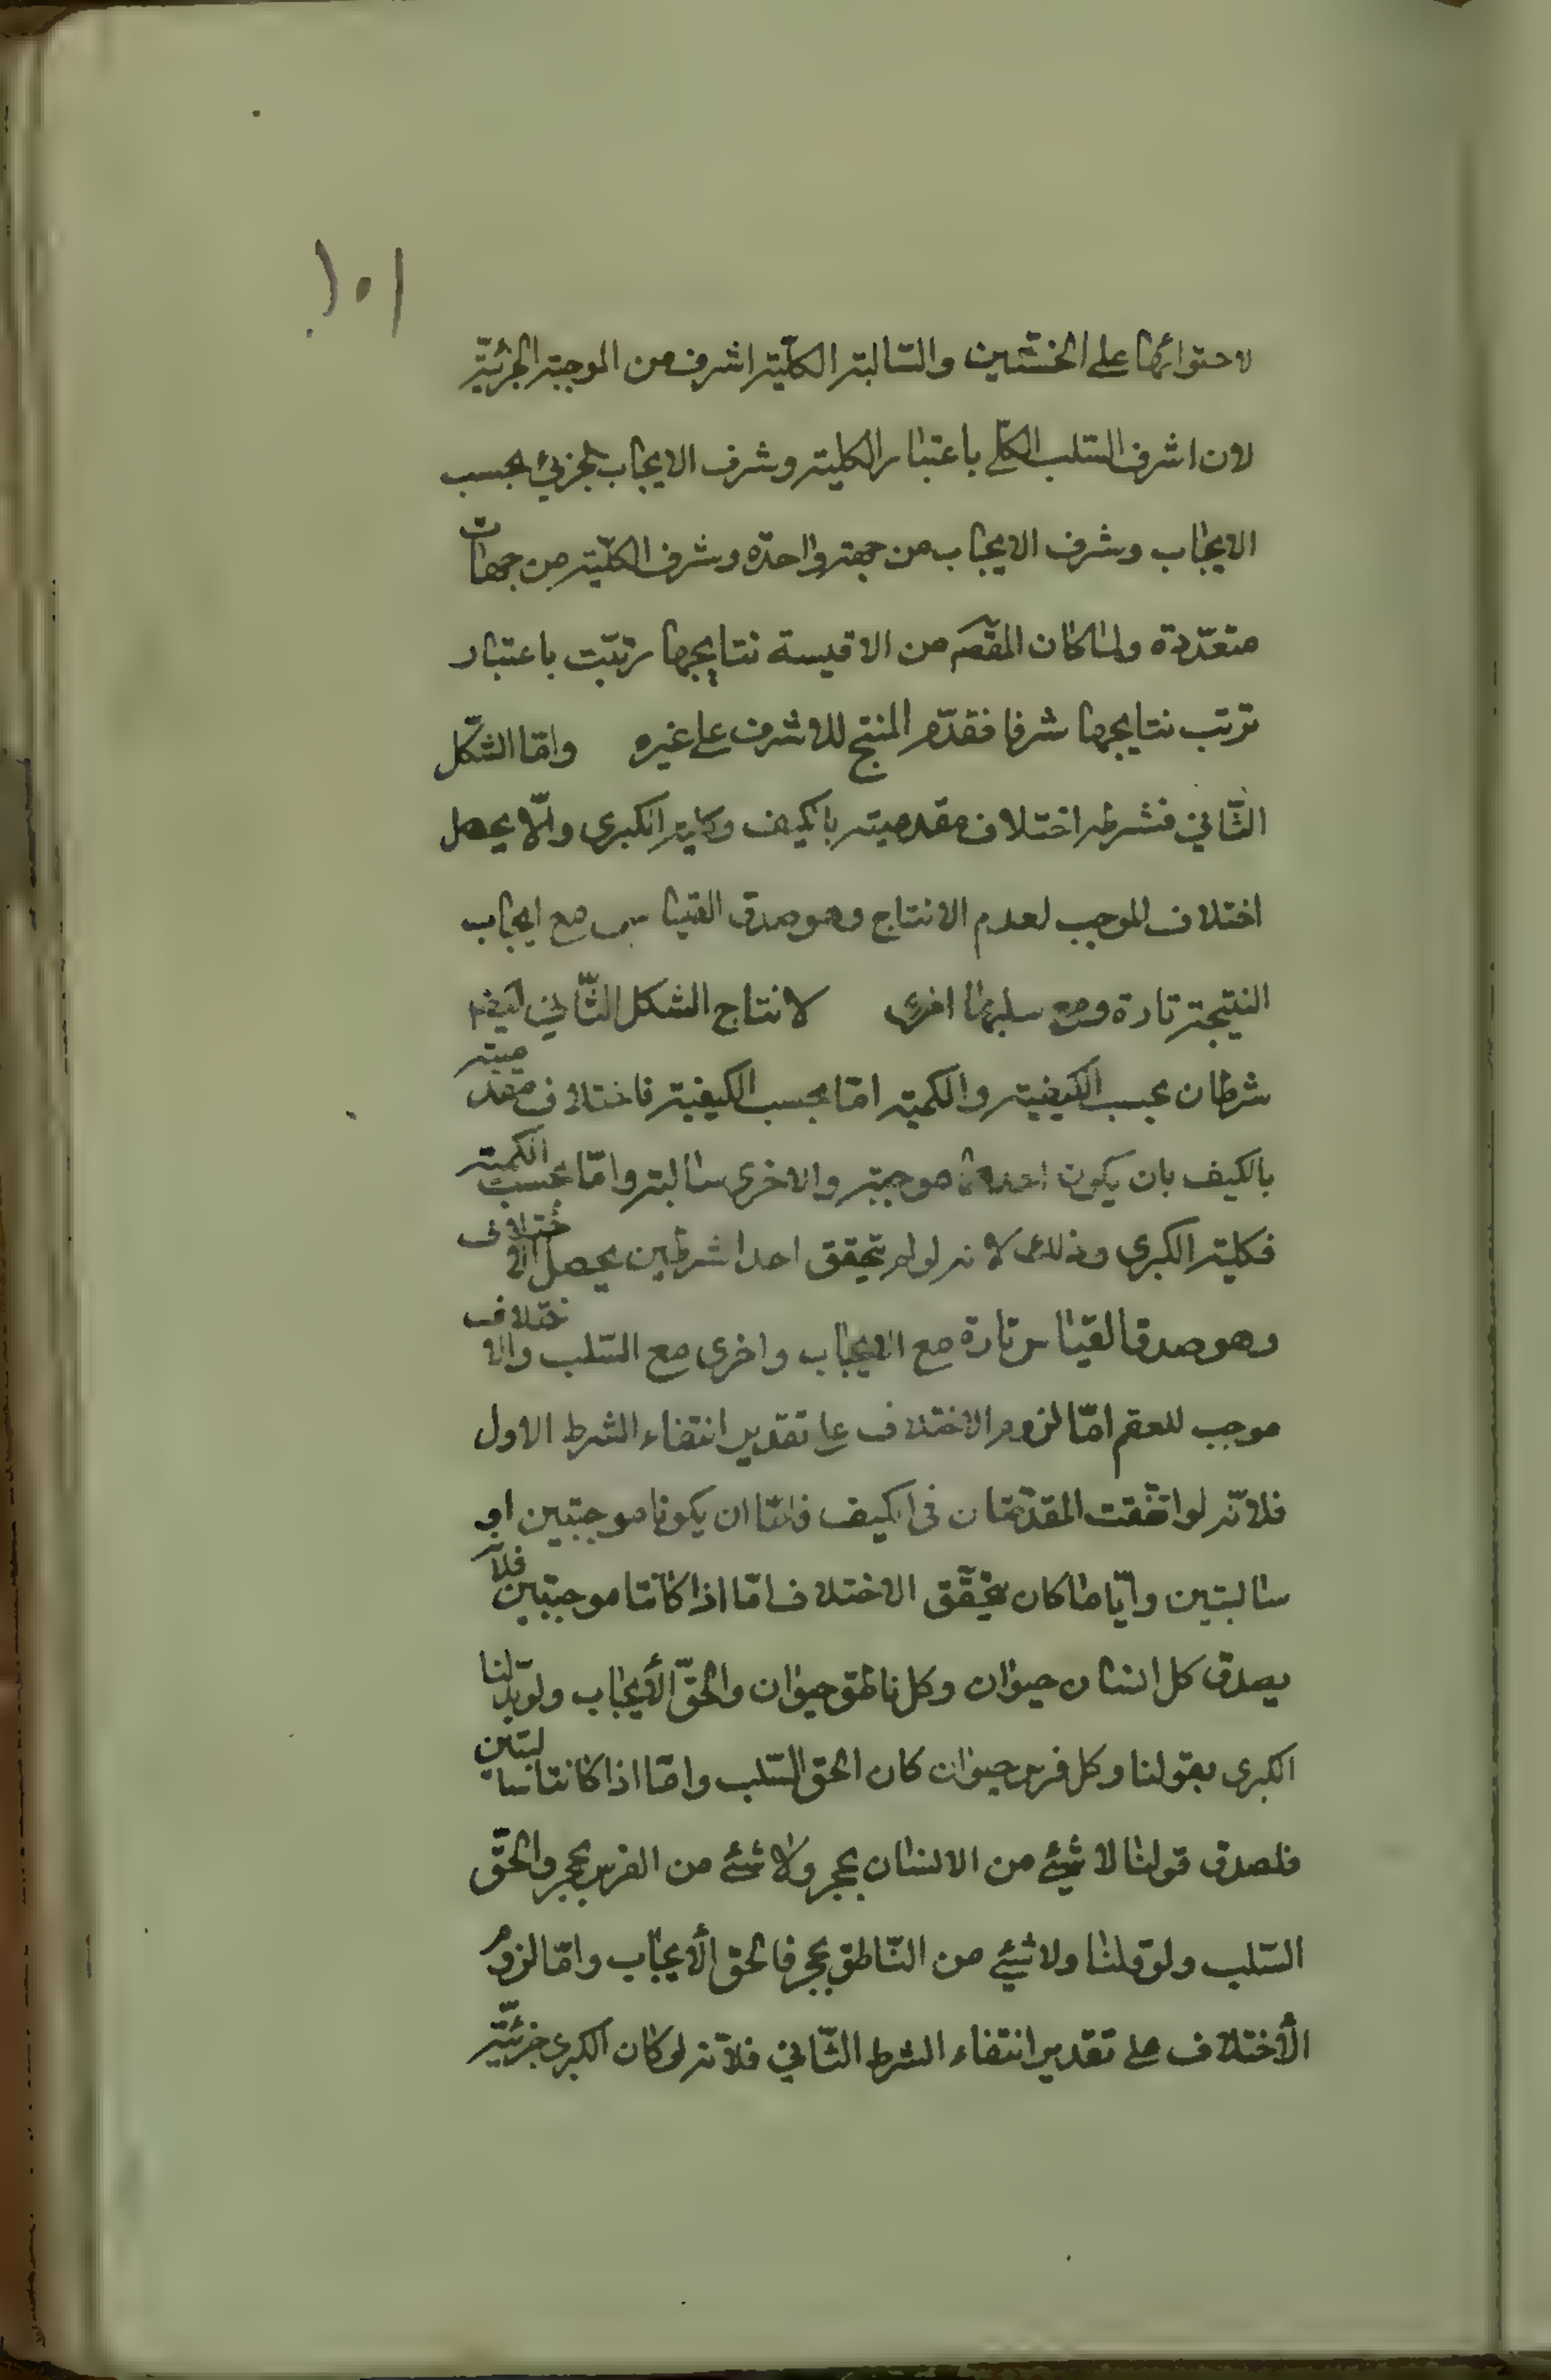 ١٠١
لاحتوائها على الخستين والسّالبة الكلّية اشرف من الموجبة الجزئيّة
لان اشرف السّلب الكلّي باعتبار الكلية وشرف الايجاب الجزئي بحسب
الايجاب وشرف الايجاب من جهة واحدة وشرف الكلّية من جهات
متعدّدة ولما كان المقصّ من الاقيسة نتايجها رتبّت باعتبار
ترتب نتايجها شرفا فقدّم المنتج للاشرف على غيره وامّا الشّكل
الثّاني فشرطه اختلاف مقدميته بالكيف وكلية الكبرى والّا يحصل
اختلاف الموجب لعدم الانتاج وهو صدق القياس مع ايجاب
النتيجة تارة ومع سلبها اخرى لانتاج الشكل الثّاني ايضا
شرطان بحسب الكيفية والكمية امّا بحسب الكيفية فاختلاف مقدميته
بالكيف بان يكون احدهما موجبة والاخرى سالبة وامّا بحسب الكمية
فكلية الكبرى وذلك لانه لو لم يتحقق احد اشرطين يحصل الاختلاف
وهو صدق القياس تارة مع الايجاب واخرى مع السّلب والاختلاف
موجب للعقم امّا لزوم الاختلاف على تقدير انتفاء الشرط الاول
فلانّه لو اتّفقت المقدّمتان فى الكيف فامّا ان يكونا موجبتين او
سالبتين وايّاما كان يتحقّق الاختلاف امّا اذا كانتا موجبتين فلانّه
يصدق كل انسان حيوان وكل ناطق حيوان والحقّ الأيجاب ولو بدّلنا
الكبرى بقولنا وكل فرس حيوان كان الحق السّلب وامّا اذا كانتا سالبتين
فلصدق قولنا لا شيئ من الانسان بحجر ولا شيئ من الفرس بحجر والحقّ
السّلب ولو قلنا ولا شيئ من النّاطق بحجر فالحق الأيجاب وامّا لزوم
الأختلاف على تقدير انتفاء الشرط الثّاني فلانّه لو كان الكبرى جزئيّة